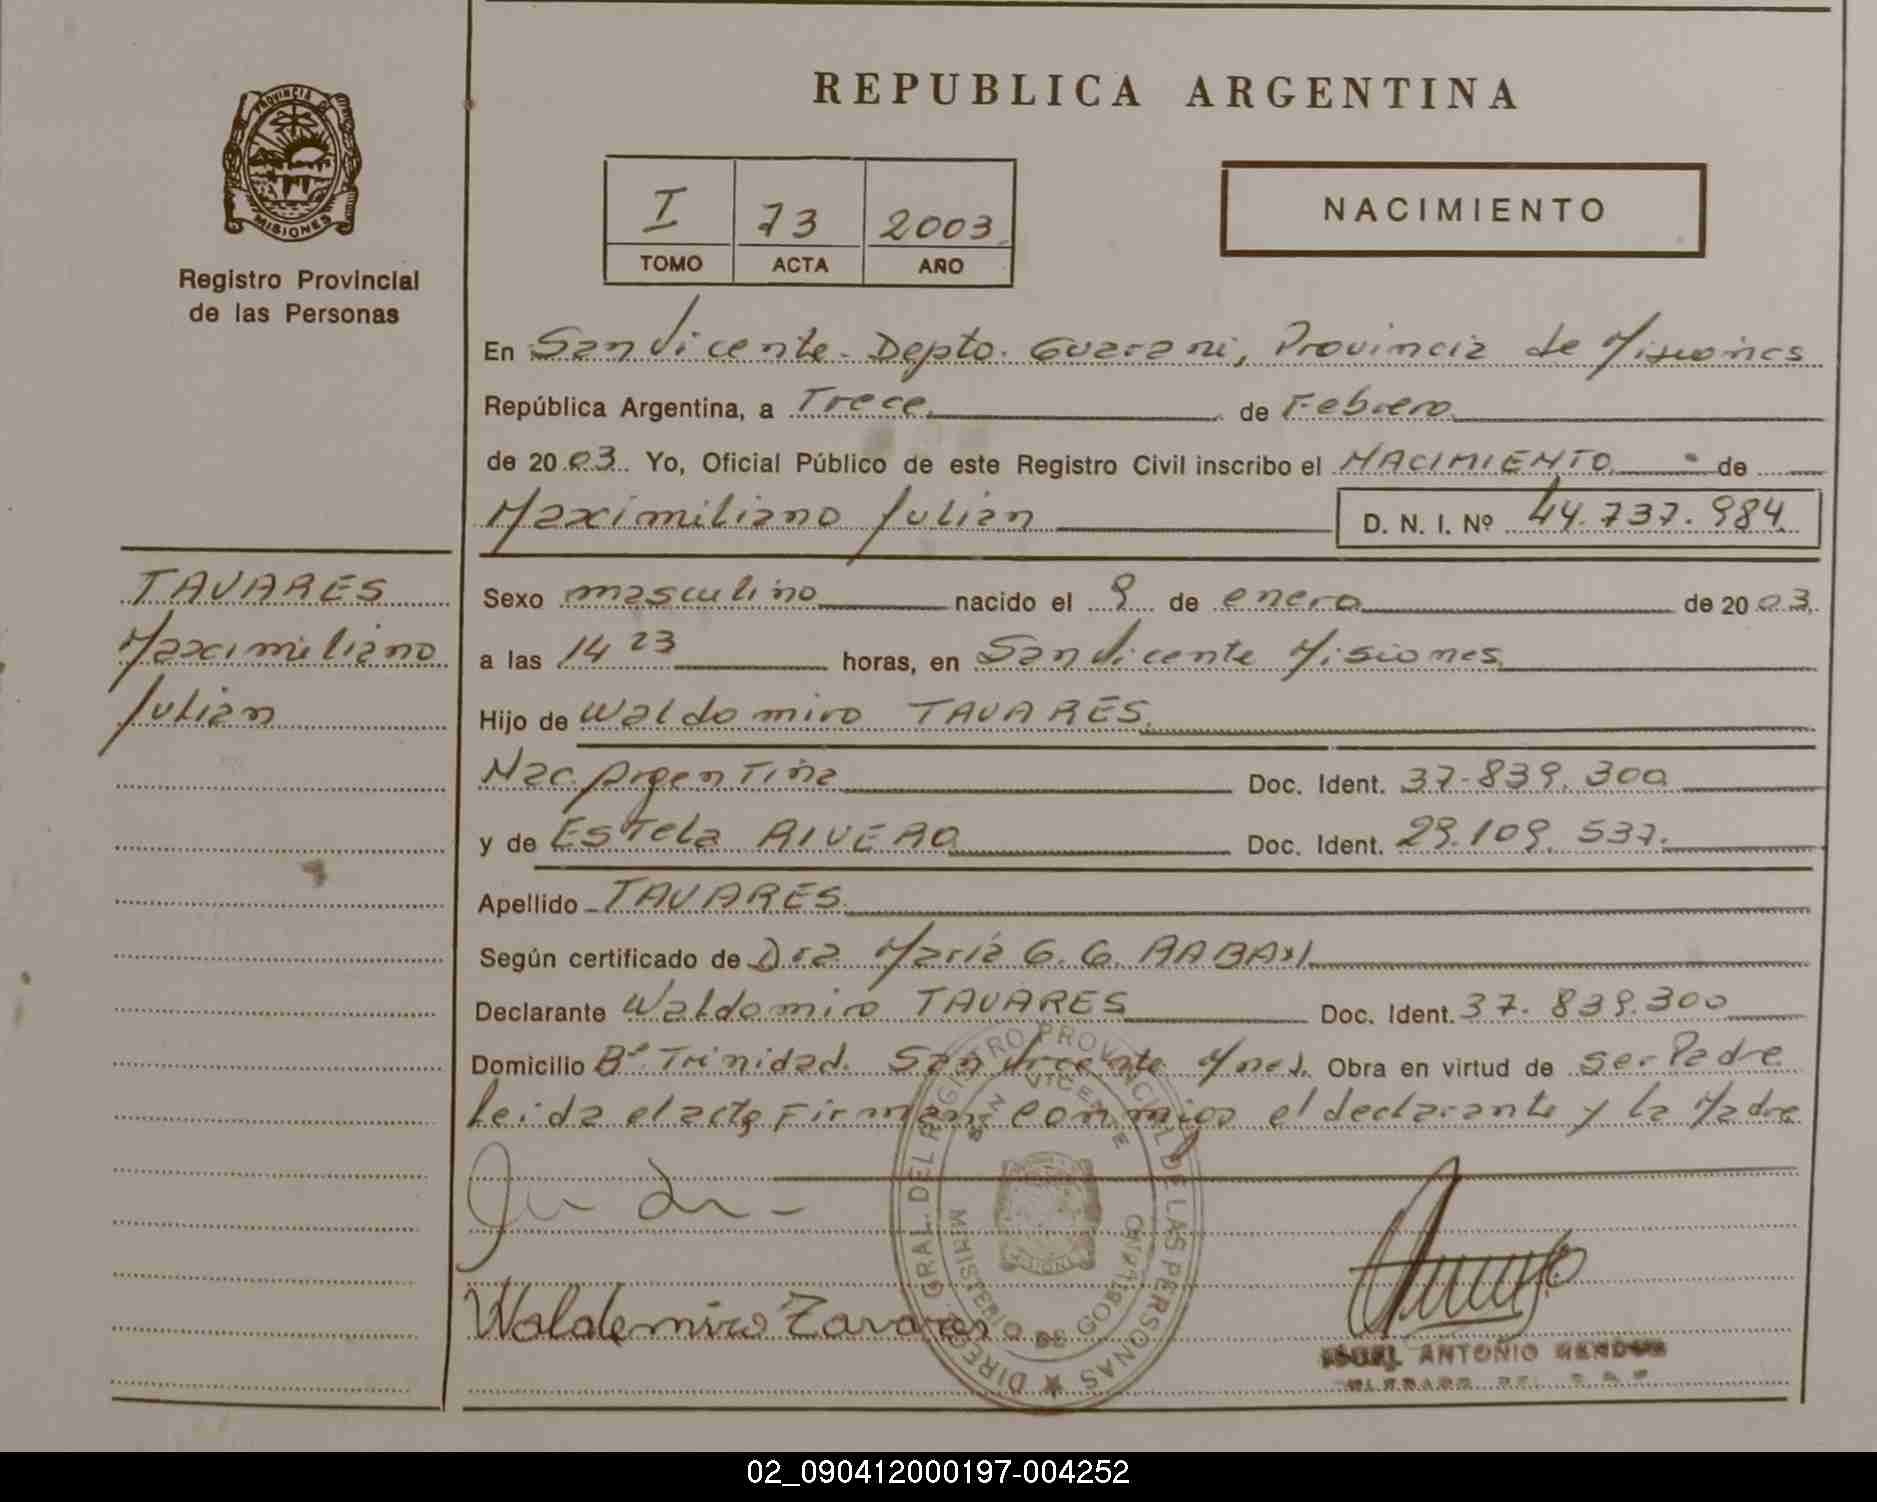 REPUBLICA ARGENTINA
PROVINCIA DE
MISIONES
Registro Provincial
de las Personas
I 73 2003
TOMO ACTA AÑO
NACIMIENTO
En San Vicente. Depto. Guarani, Provincia de Misiones
República Argentina, a Trece de Febrero
de 2003. Yo, Oficial Público de este Registro Civil inscribo el NACIMIENTO de
Maximiliano Julian D. N. I. Nº 44.737.984
TAVARES
Maximiliano
Julian
Sexo masculino nacido el 9 de enero de 2003.
a las 14 23 horas, en San Vicente Misiones
Hijo de Waldomiro TAVARES
Nac. Argentina Doc. Ident. 37.839.300
y de Estela RIVERO Doc. Ident. 29.109.537.
Apellido TAVARES
Según certificado de Dra Maria G. G.
Declarante Waldomiro TAVARES Doc. Ident. 37.839.300
Domicilio Bº Trinidad. San Vicente Mnes. Obra en virtud de ser Padre
Leida el acta Firman conmigo el declarante y la Madre
Waldemiro Tavares
DIREC. GRAL. DEL REGISTRO PROVINCIAL DE LAS PERSONAS
SAN VICENTE
MINISTERIO DE GOBIERNO
ANTONIO
02_090412000197-004252